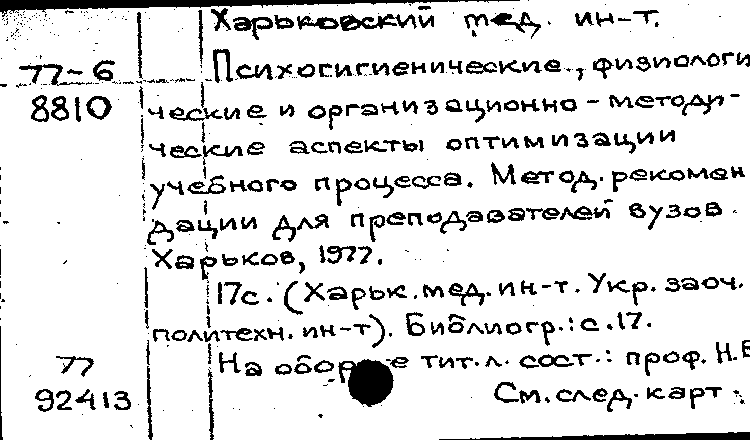 Харьковский мед. ин-т.
77-6 Психогигиенические, физиологи
8810 ческие и организационно-методи-
ческие аспекты оптимизации
учебного процесса. Метод. рекомен
дации для преподавателей вузов.
Харьков, 1977.
17с. (Харьк. мед. ин-т. Укр. заоч.
политехн. ин-т). Библиогр.: с. 17.
77 На оборо е тит. л. сост.: проф. Н.
92413 См. след. карт.